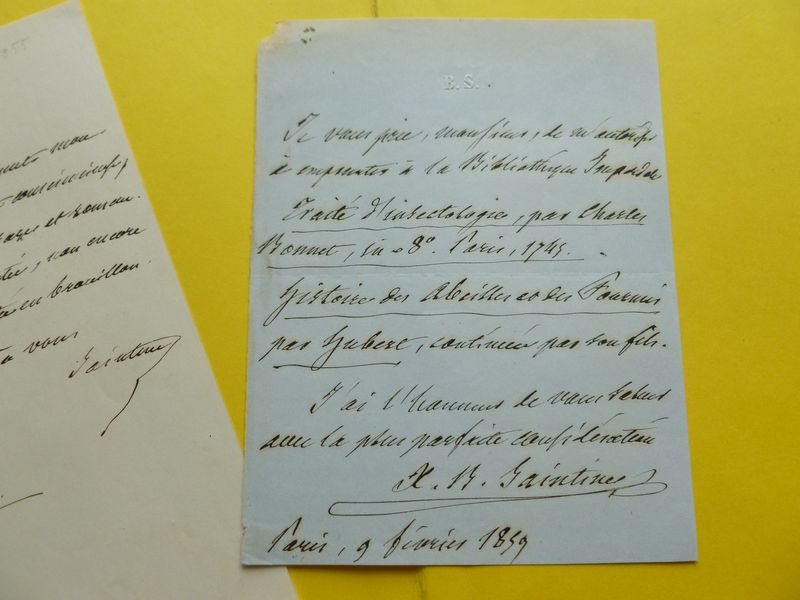 355
mon
consciencieuse,
et roman.
, non encore
en brouillon.
à vous
Saintine
B. S.
Je vous prie, monsieur, de m'autoriser
à emprunter à la Bibliothèque Impériale
Traité d'insectologie, par Charles
Bonnet, in-8°. Paris, 1745.
Histoire des Abeilles et des Fourmis
par Hubert, continuée par son fils.
J'ai l'honneur de vous saluer
avec la plus parfaite considération
X. B. Saintine
Paris, 9 février 1859